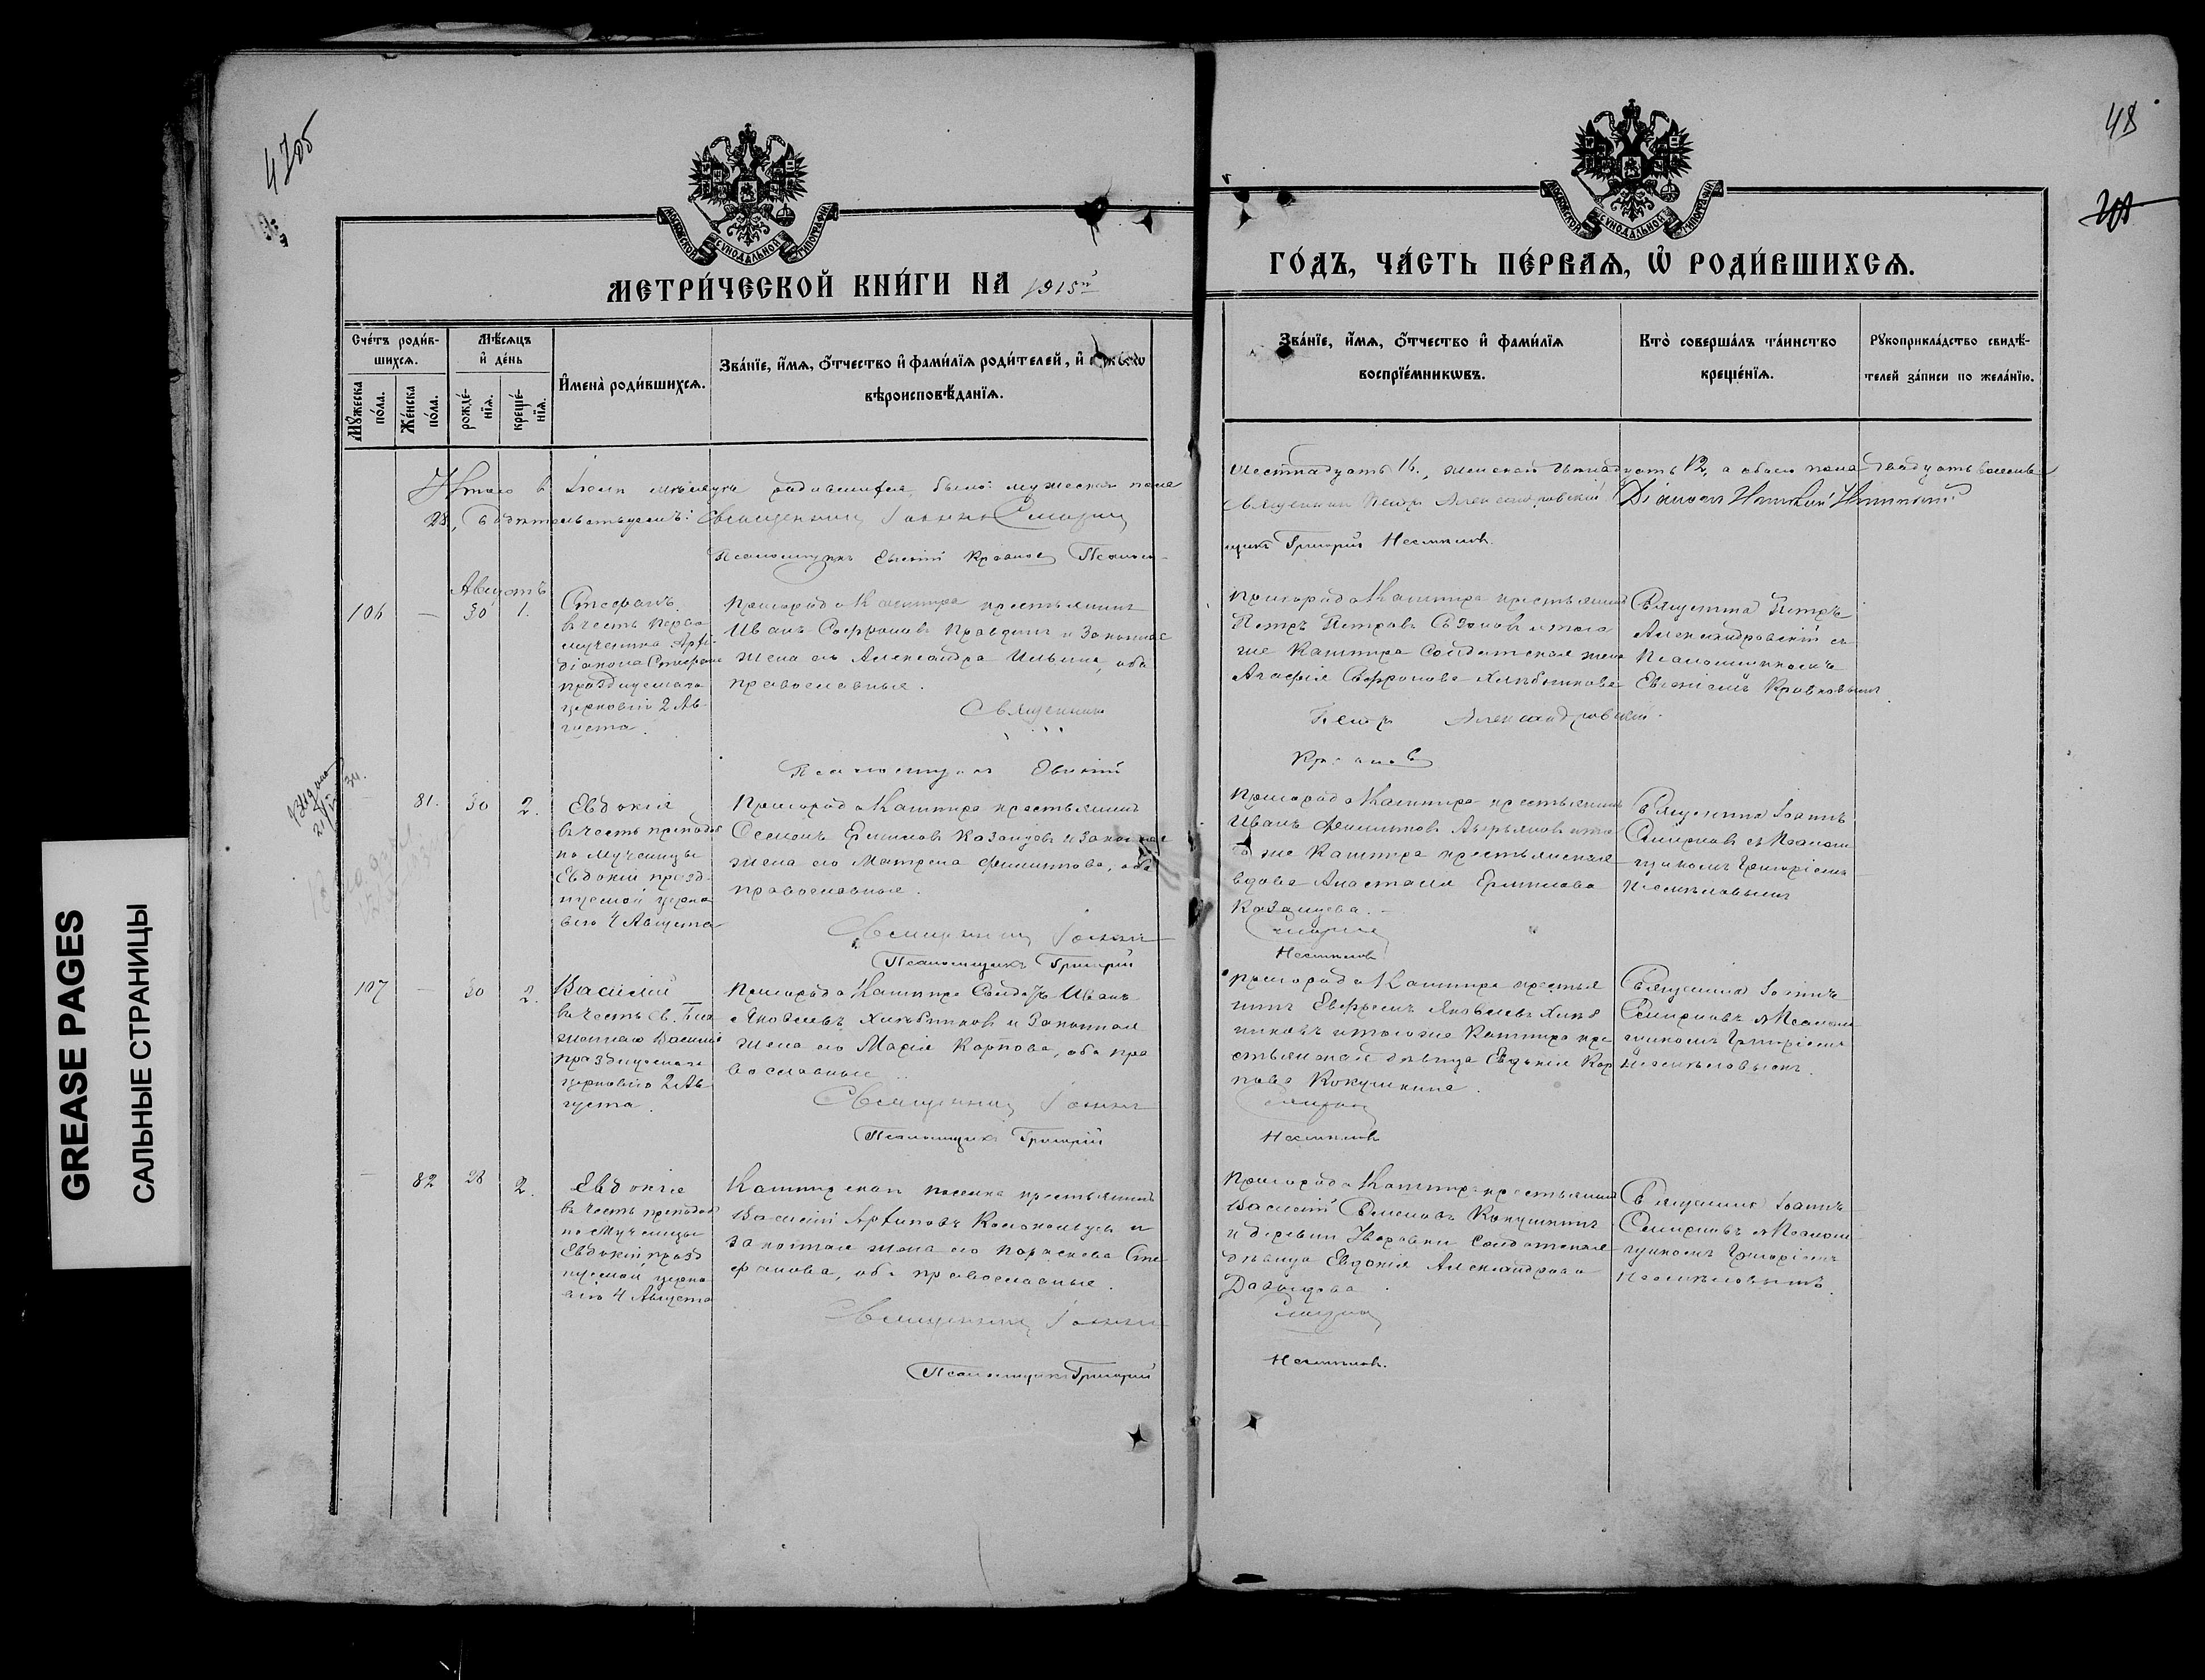 47об
48
МОСКОВСКОЙ СѴНОДАЛЬНОЙ ТИПОГРАФИИ
МОСКОВСКОЙ СѴНОДАЛЬНОЙ ТИПОГРАФИИ
МЕТРИ́ЧЕСКОЙ КНИ́ГИ НА 1915й
ГО́ДЪ, ЧА́СТЬ ПЕ́РВАѦ, Ѡ҆ РОДИ́ВШИХСѦ.
Сче́тъ роди́в-
шихсѧ.
Мꙋ́жеска
по́ла.
Же́нска
по́ла.
Мѣ́сѧцъ
и҆ де́нь
рожде́-
нїѧ.
креще́-
нїѧ.
И҆мена̀ роди́вшихсѧ.
Зва́нїе, и҆́мѧ, ѻ҆́тчество и҆ фами́лїѧ роди́телей, и҆
вѣроисповѣ́данїѧ.
Зва́нїе, и҆́мѧ, ѻ҆́тчество и҆ фами́лїѧ
воспрїе́мникѡвъ.
Кто̀ соверша́лъ та́инство
креще́нїѧ.
Рꙋкоприкла́дство свидѣ́-
телей за́писи по жела́нїю.
Итого въ Іюлѣ мѣсяцѣ родившихся было: мужеска пола
шестнадцать 16, женска двѣнадцать 12, а обоего пола двадцать восемь
28, Свидѣтельствуемъ: Священникъ Іоаннъ Смирнов
Священник Петръ Александровскій Діаконъ
Псаломщикъ Евгеній Краснов Псалом-
щикъ Григорій Несмѣлов.
Августъ
106 — 30 1.
Стефанъ
въ честь перво
мученика Архи
діакона Стефана
празднуемаго
церковію 2 Ав-
густа.
Пригорода Каштира крестьянинъ
Иванъ Софроновъ Правдинъ и законная
жена его Александра Ильина, оба
православные.
Священникъ
Псаломщикъ Евгеній
Пригорода Каштира крестьянинъ
Петръ Петровъ Сазоновъ и того
же Каштира солдатская жена
Агафія Софронова Хлѣбникова
Петръ Александровскій
Краснов
Священникъ Петръ
Александровскій съ
Псаломщикомъ
Евгеніемъ Красновымъ
— 81. 30 2.
Евдокія
въ честь преподоб
но Мученицы
Евдокіи празд-
нуемой церко
вію 4 Августа
Пригорода Каштира крестьянинъ
Семенъ Ермиловъ Казанцевъ и законная
жена его Матрена Филиппова, оба
православные.
Священникъ Іоаннъ
Псаломщикъ Григорій
Пригорода Каштира крестьянинъ
Иванъ Филипповъ Аверьяновъ и того
же Каштира крестьянская
вдова Анастасія Ермилова
Казанцева.
Смирнов
Несмѣлов
Священникъ Іоаннъ
Смирновъ съ Псалом
щикомъ Григоріемъ
Несмѣловымъ
107 — 30 2.
Василій
въ честь св. Бла
женнаго Василія
празднуемаго
церковію 2 Ав-
густа.
Пригорода Каштира Солдатъ Иванъ
Яковлевъ Хлѣбниковъ и законная
жена его Марія Карпова, оба пра
вославные
Священникъ Іоаннъ
Псаломщикъ Григорій
Пригорода Каштира крестья
нинъ Евфремъ Яковлевъ Хлѣб
никовъ и того же Каштира кре
стьянская дѣвица Евдокія Кар
пова Кокушкина.
Смирнов
Несмѣлов
Священникъ Іоаннъ
Смирновъ съ Псалом
щикомъ Григоріемъ
Несмѣловымъ.
— 82 28 2.
Евдокія
въ честь преподоб
но Мученицы
Евдокіи празд
нуемой церко
вію 4 Августа
Каштирскаго поселка крестьянинъ
Василій Архиповъ Колокольцевъ и
законная жена его Параскева Сте
фанова, оба православные.
Священникъ Іоаннъ
Псаломщикъ Григорій
Пригорода Каштира крестьянинъ
Василій Семеновъ Кокушкинъ
и деревни Уваровки солдатская
дѣвица Евдокія Александрова
Давыдова.
Смирнов
Несмѣлов.
Священникъ Іоаннъ
Смирновъ съ Псалом-
щикомъ Григоріемъ
Несмѣловымъ.
GREASE PAGES
САЛЬНЫЕ СТРАНИЦЫ